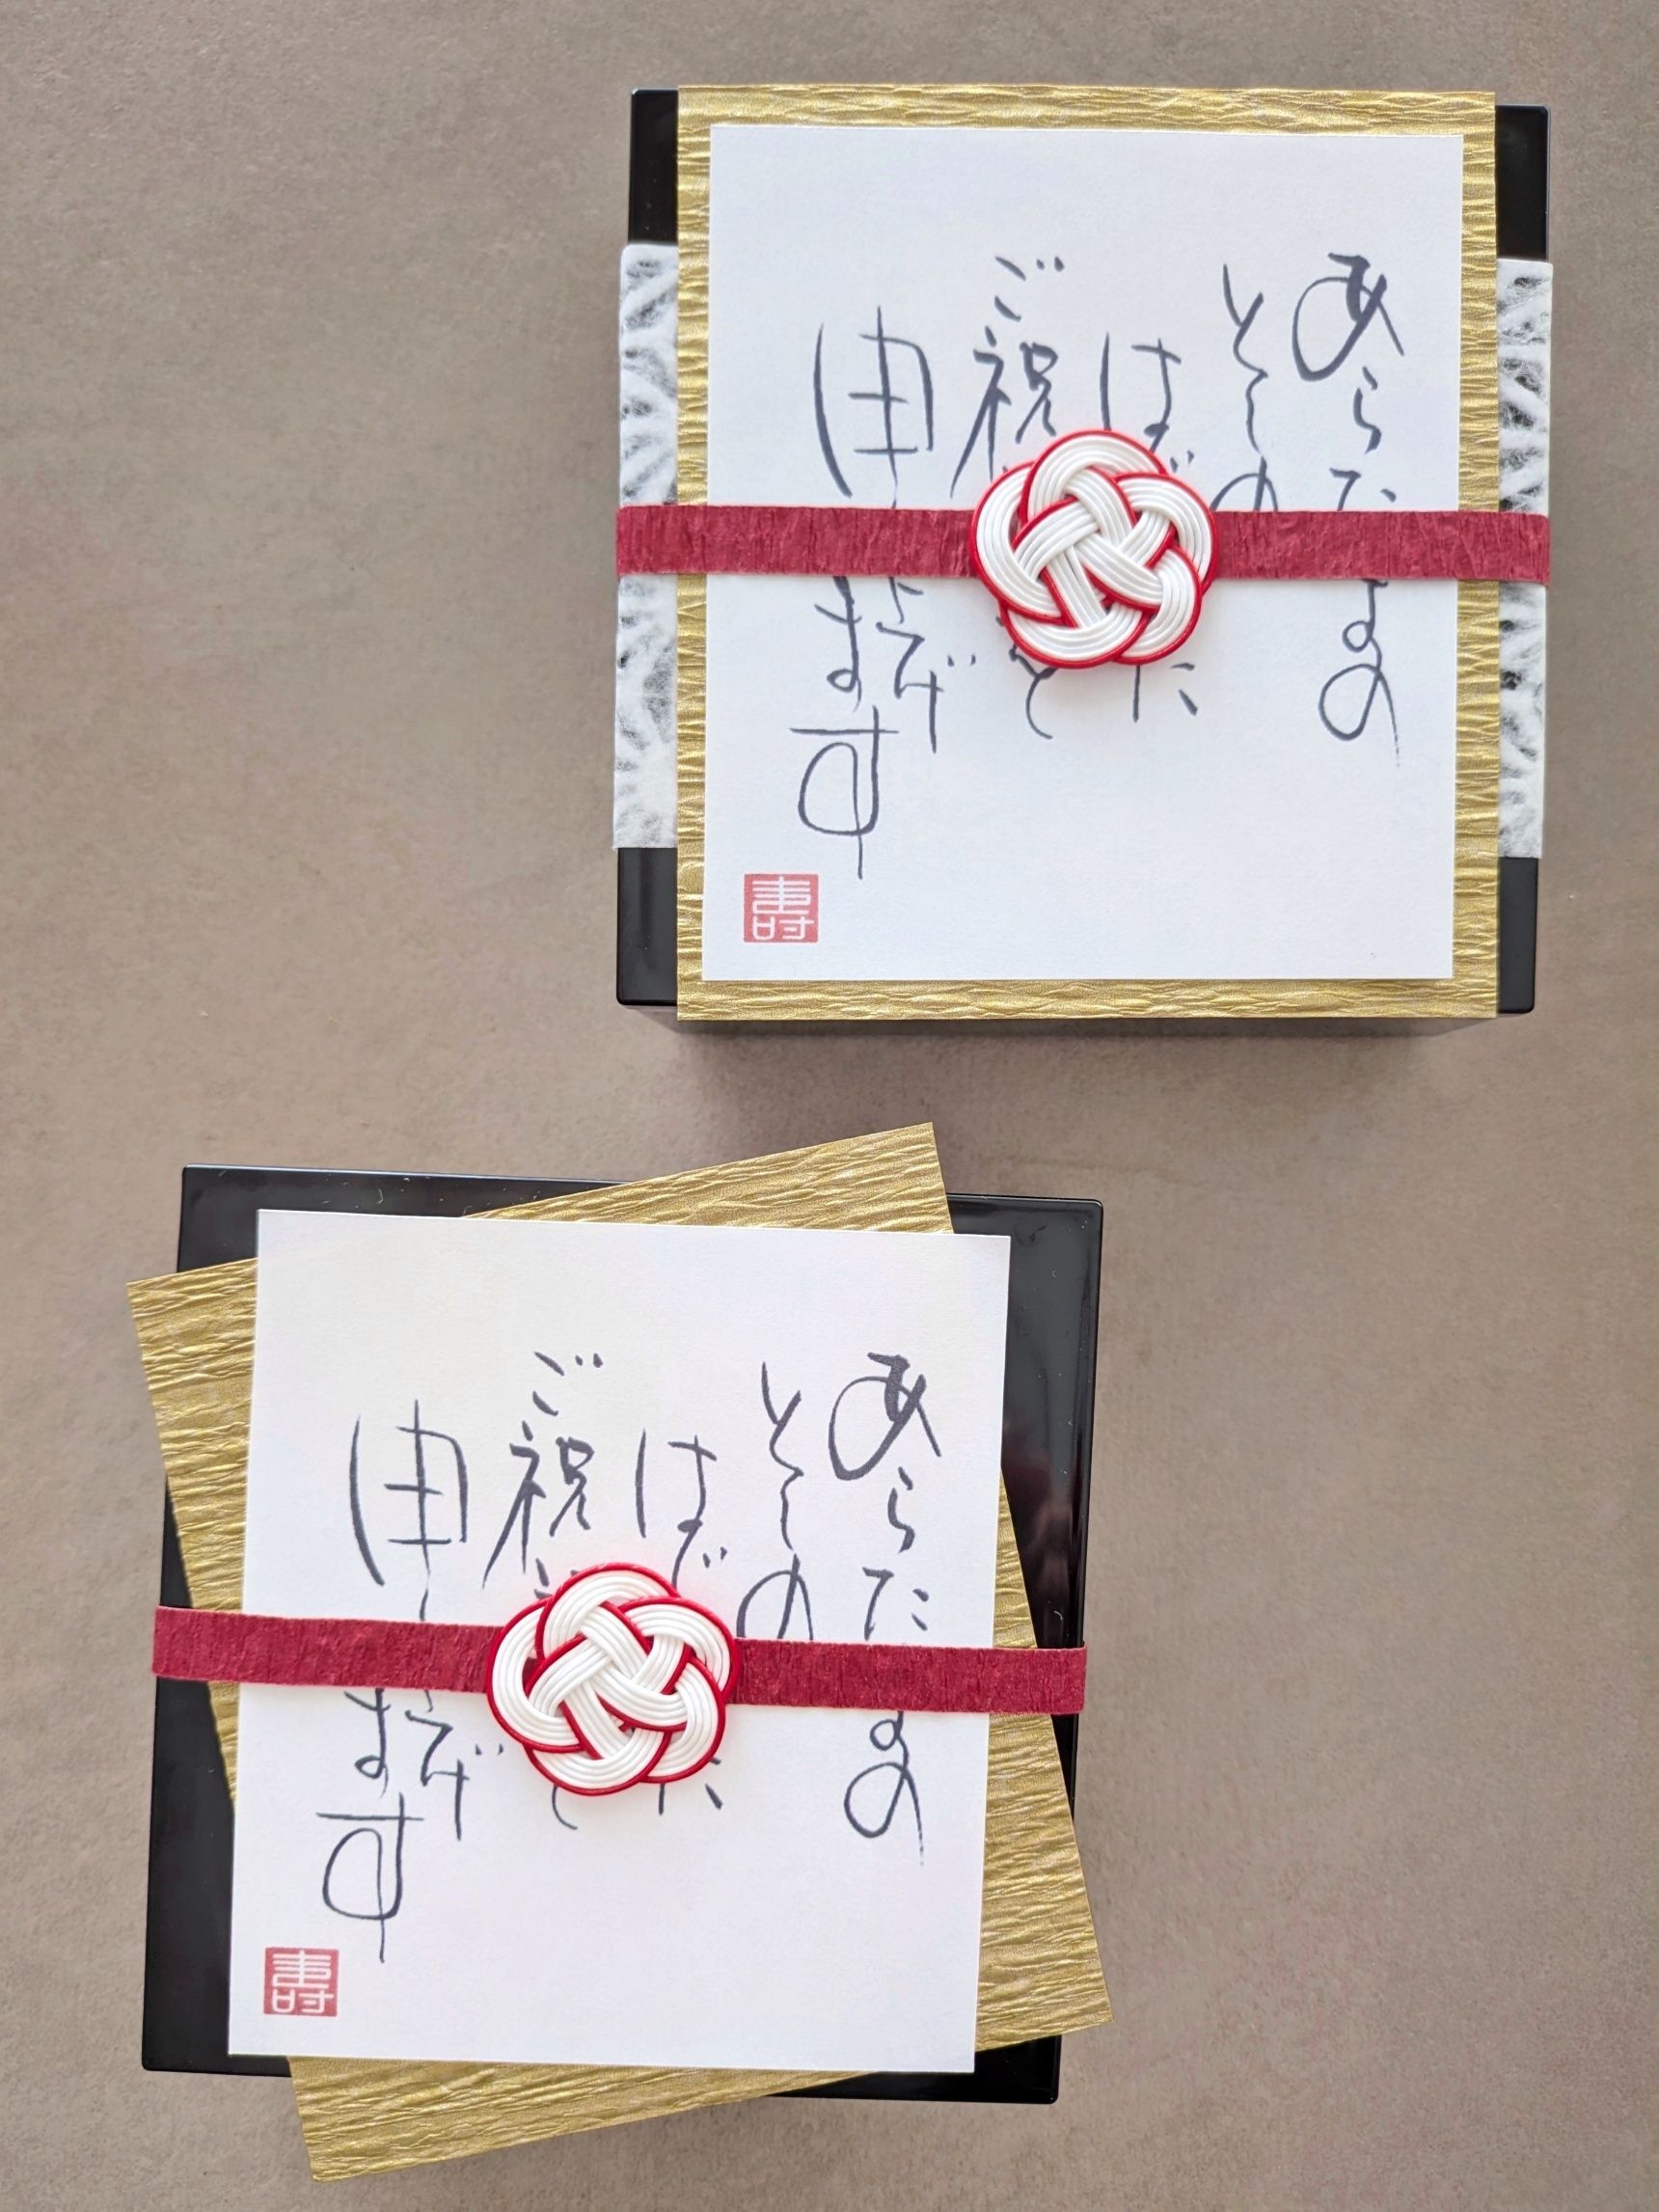 あらたまの
としの
はじめに
ご祝
申し上げ
ます
壽
あらたまの
としの
はじめに
ご祝
申し上げ
ます
壽